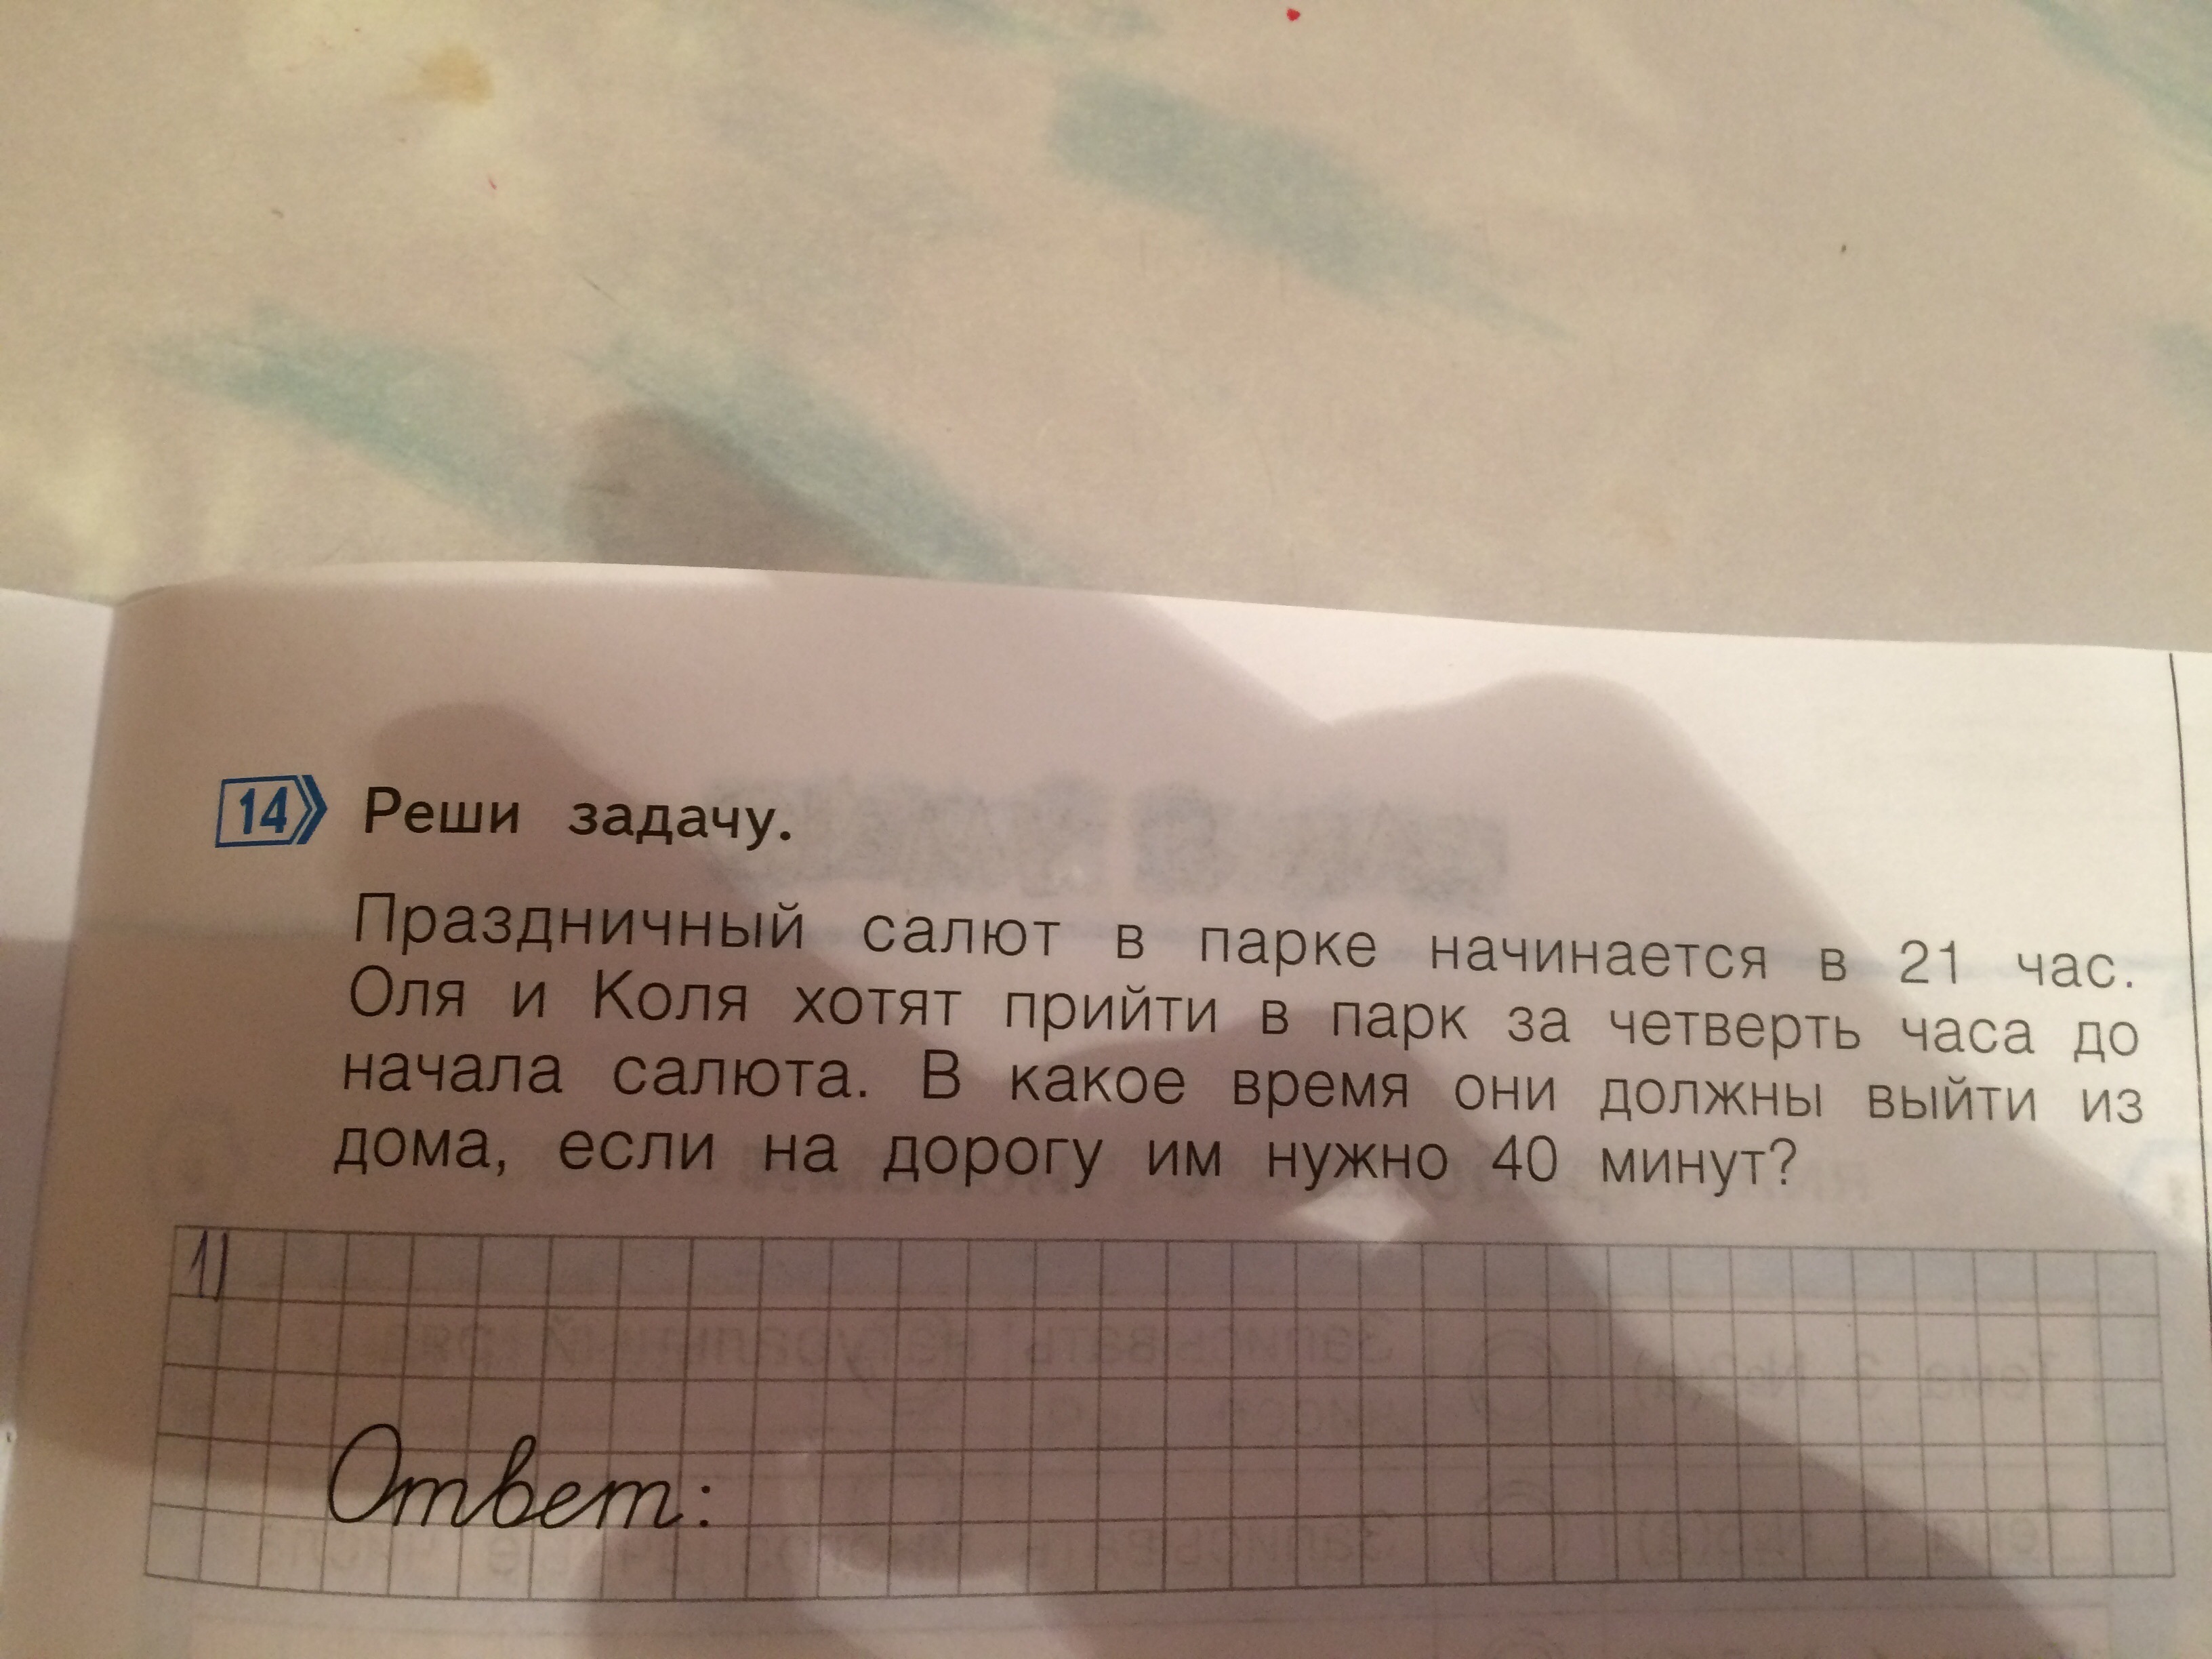 14 Реши задачу.
Праздничный салют в парке начинается в 21 час.
Оля и Коля хотят прийти в парк за четверть часа до
начала салюта. В какое время они должны выйти из
дома, если на дорогу им нужно 40 минут?
1)
Ответ: